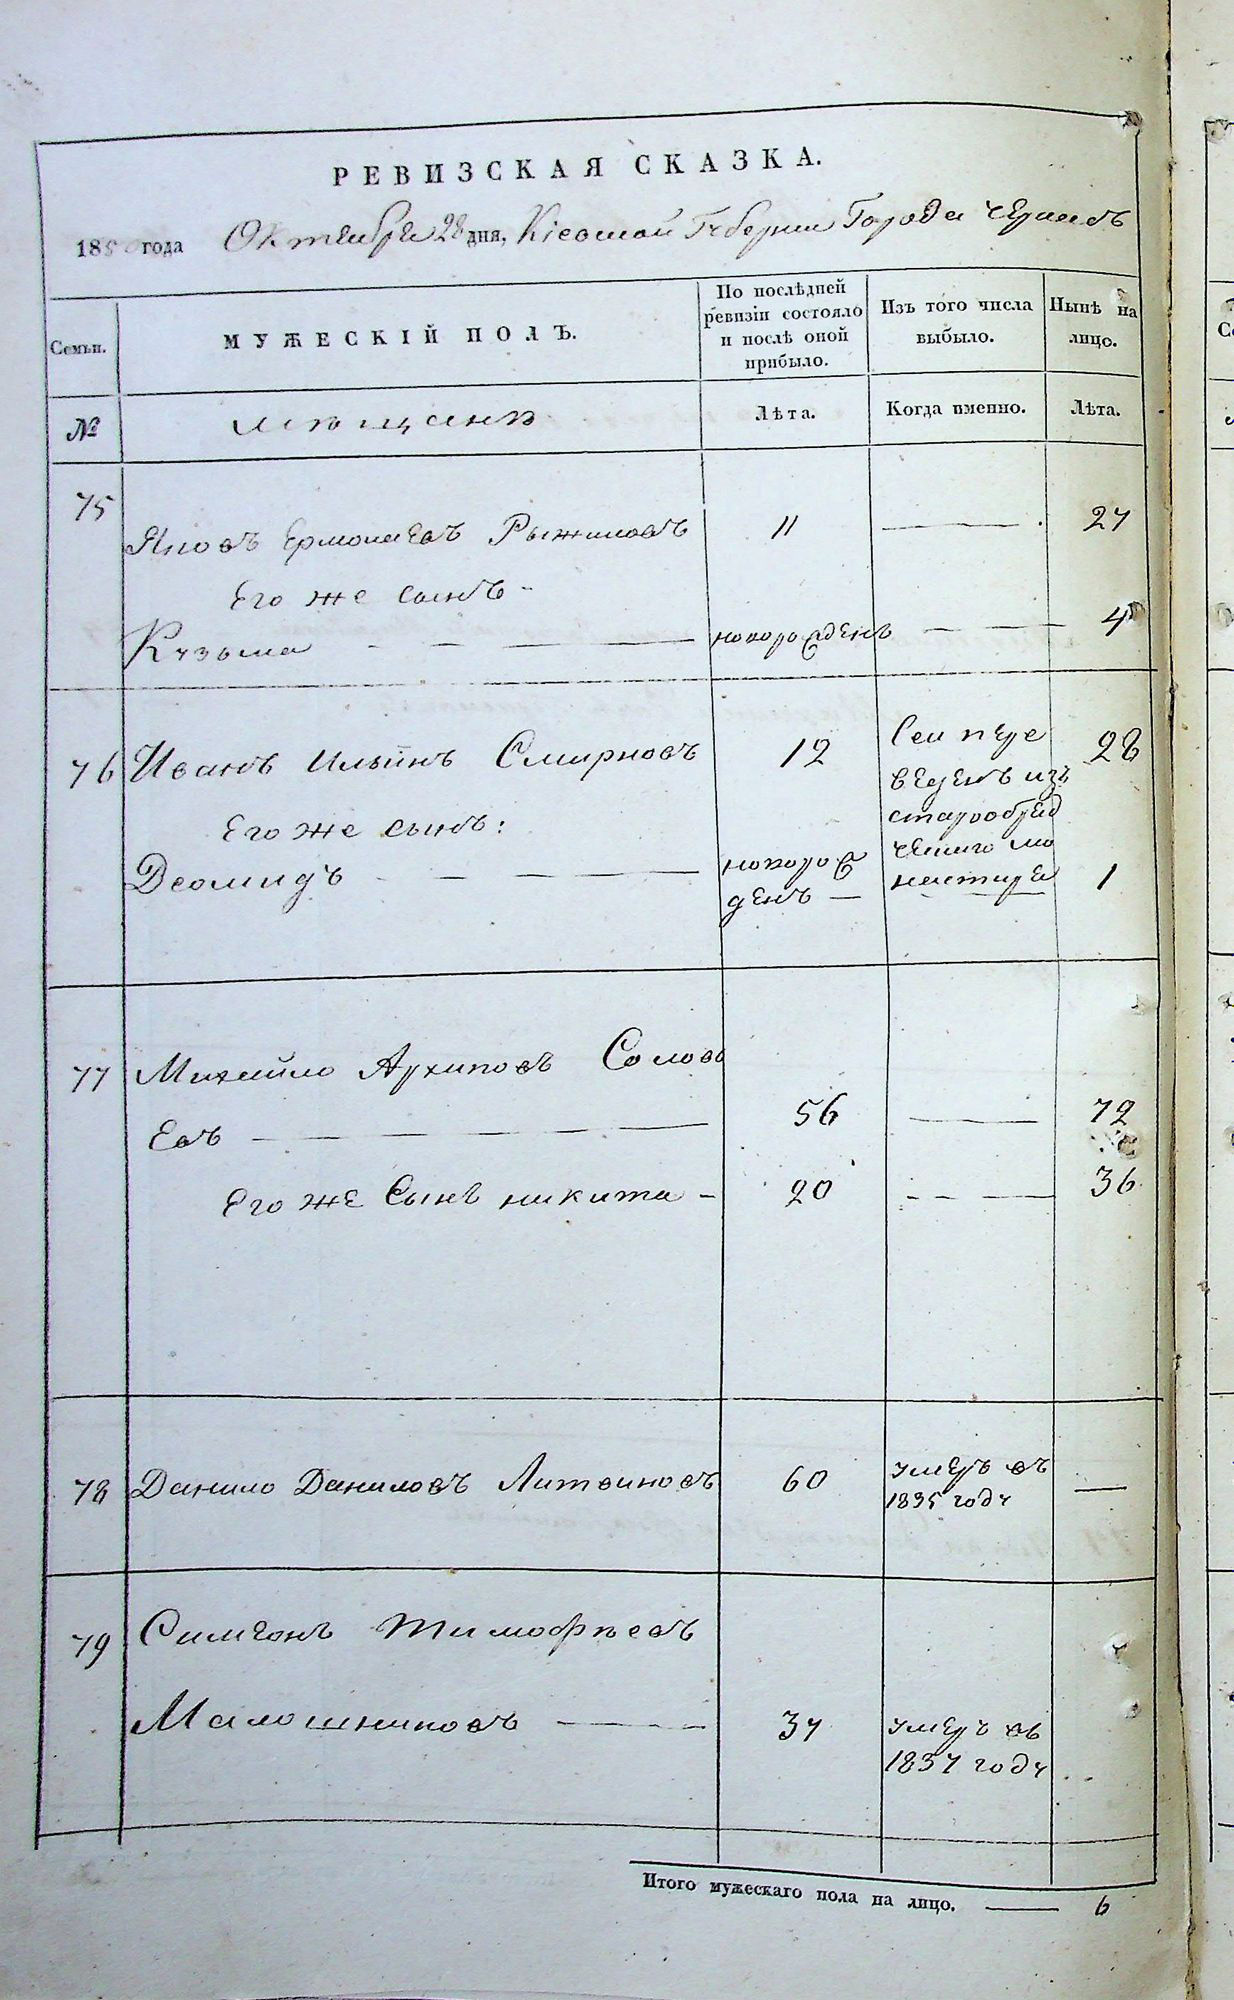 РЕВИЗСКАЯ СКАЗКА.
1850 года Октября 28 дня, Кіевской Губерніи Города Черкасъ
Семьи.
МУЖЕСКІЙ ПОЛЪ.
По послѣдней
ревизіи состояло
и послѣ оной
прибыло.
Изъ того числа
выбыло.
Нынѣ на
лицо.
№
Мѣщанѣ
Лѣта.
Когда именно.
Лѣта.
75
Яковъ Ермолаевъ Рыжиковъ 11 27
Его же сынъ
Кузьма новорожденъ 4
76 Иванъ Ильинъ Смирновъ 12 28
Сей пере
веденъ изъ
старообряд
ческаго мо
настыря
Его же сынъ:
Деомидъ новорож
денъ 1
77 Михайло Архиповъ Соловь
евъ 56 72
Его же Сынъ никита 20 36
78 Данило Даниловъ Литвиновъ 60 умеръ въ
1835 году
79 Симеонъ Тимофѣевъ
Малошниковъ 37 умеръ въ
1837 году
Итого мужескаго пола на лицо. 6